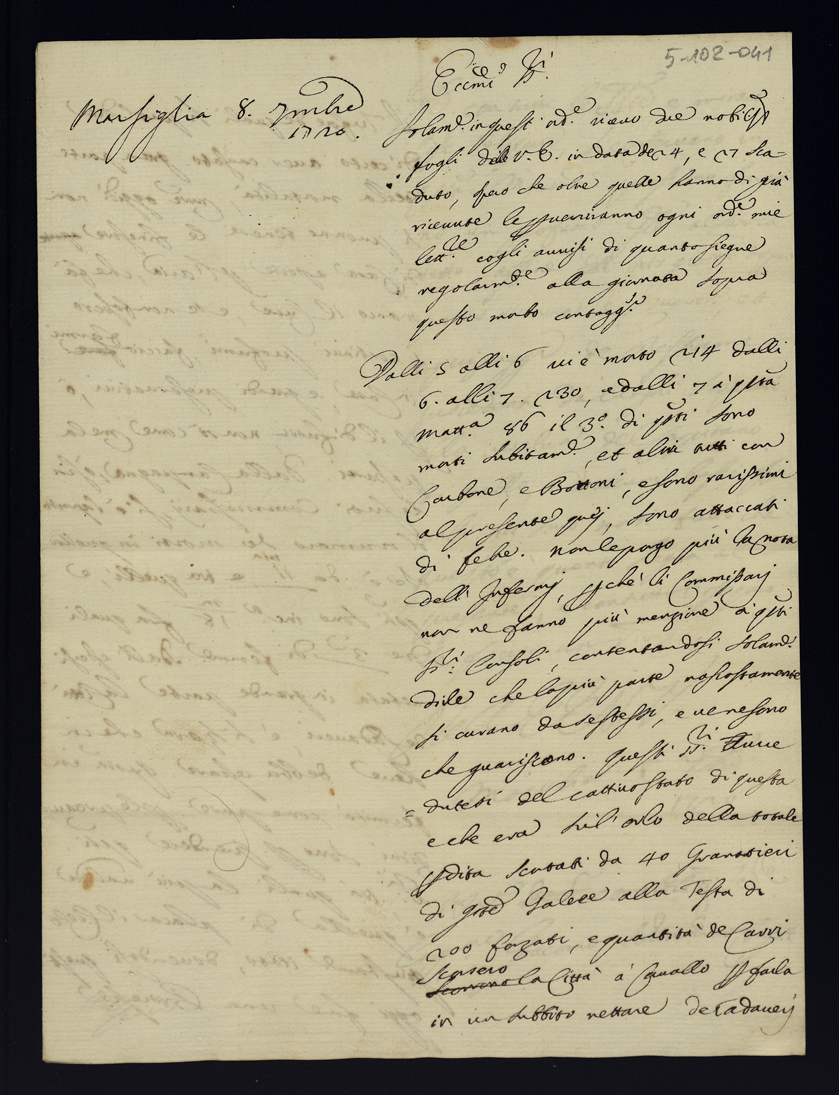 5-102-041
Marsiglia 8. 7mbre
1720.
Eccmi SS.ri
Solam.e in questi ord.e ricevo due nobiliss.
fogli dell V. E. in data de 24, e 27 sca=
duto, spero che oltre quelle hanno di già
ricevute le perveniranno ogni ord.e mie
lett.re cogli avvisi di quanto siegue
regolarm.te alla giornata sopra
questo morbo contagg.so
Dalli 5 alli 6 vi è morto 214 dalli
6. alli 7. 230, e dalli 7 à q.sta
matt.a 86 il 3.o di q.sti sono
morti subitam.e, et altri tutti con
Carbone, e Bottoni, e sono rarissimi
al presente quej, sono attaccati
di febe. non le porgo più la nota
delli Infermj, p.chè li Commissarj
non ne fanno più menzione à q.sti
SS.ri Consoli, contentandosi solam.e
dirle che la più parte nascostamente
si curano da se stessi, e ve ne sono
che guariscono. Questi SS.ri Avve
=dutesi del cattivo stato di questa
e che era sul' orlo della totale
p.dita scortati da 40 Granatieri
di q.ste Galere alla Testa di
200 forzati, e quantità de Carri
Scorsero
la Città à Cavallo p. farla
in un subbito nettare de Cadaverj